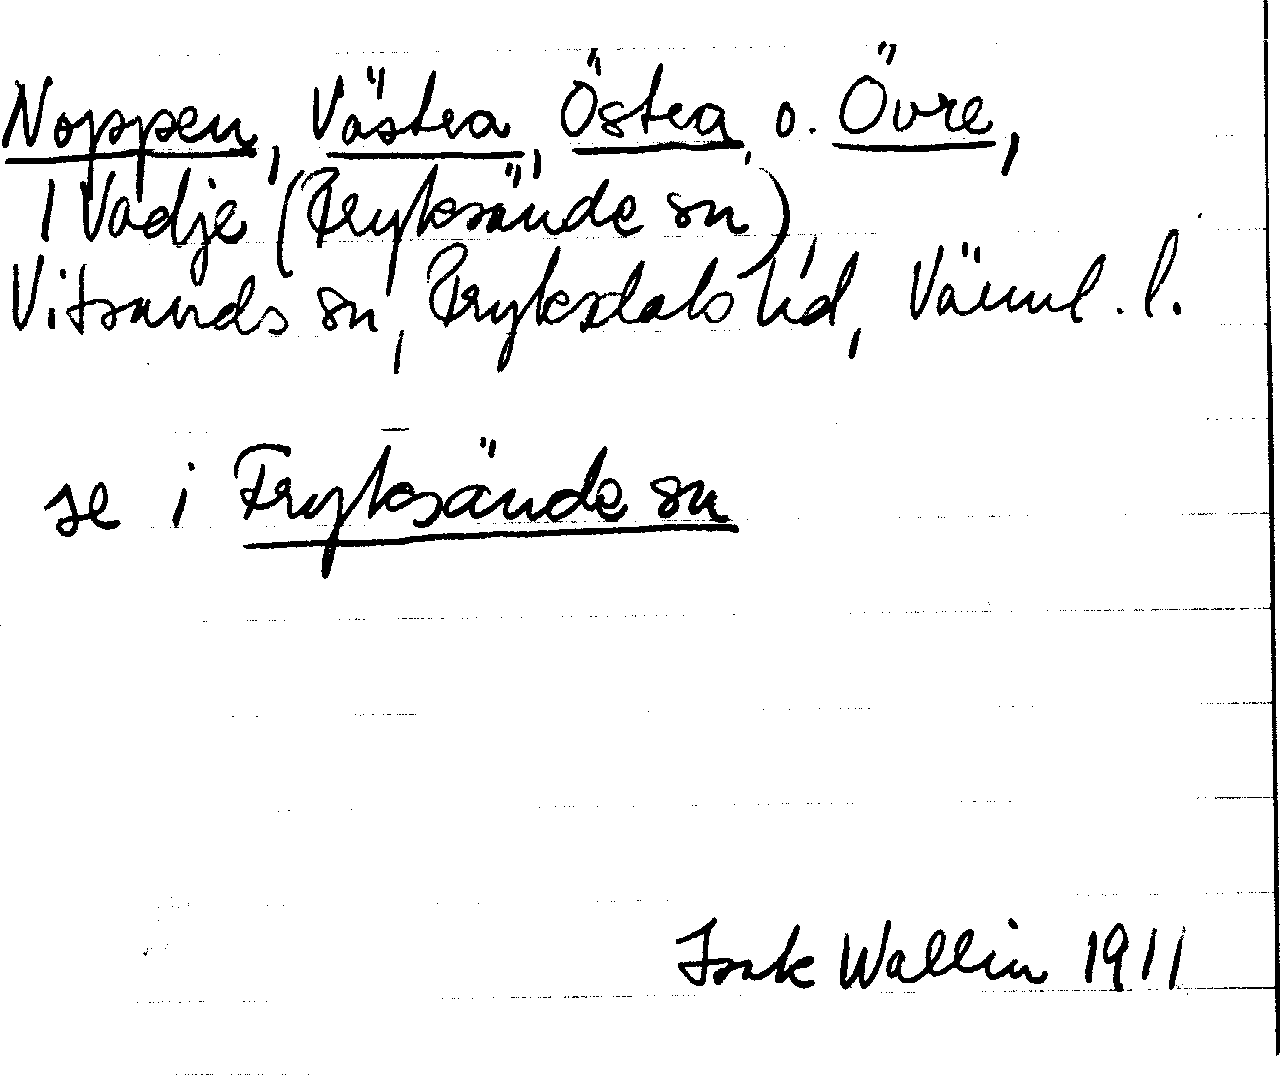 Noppen, Västra, Östra, o. Övre,
i Vadje (Fryksände sn),
Vitsands sn, Fryksdals hd, Värml. l.
se i Fryksände sn
Isak Wallin 1911